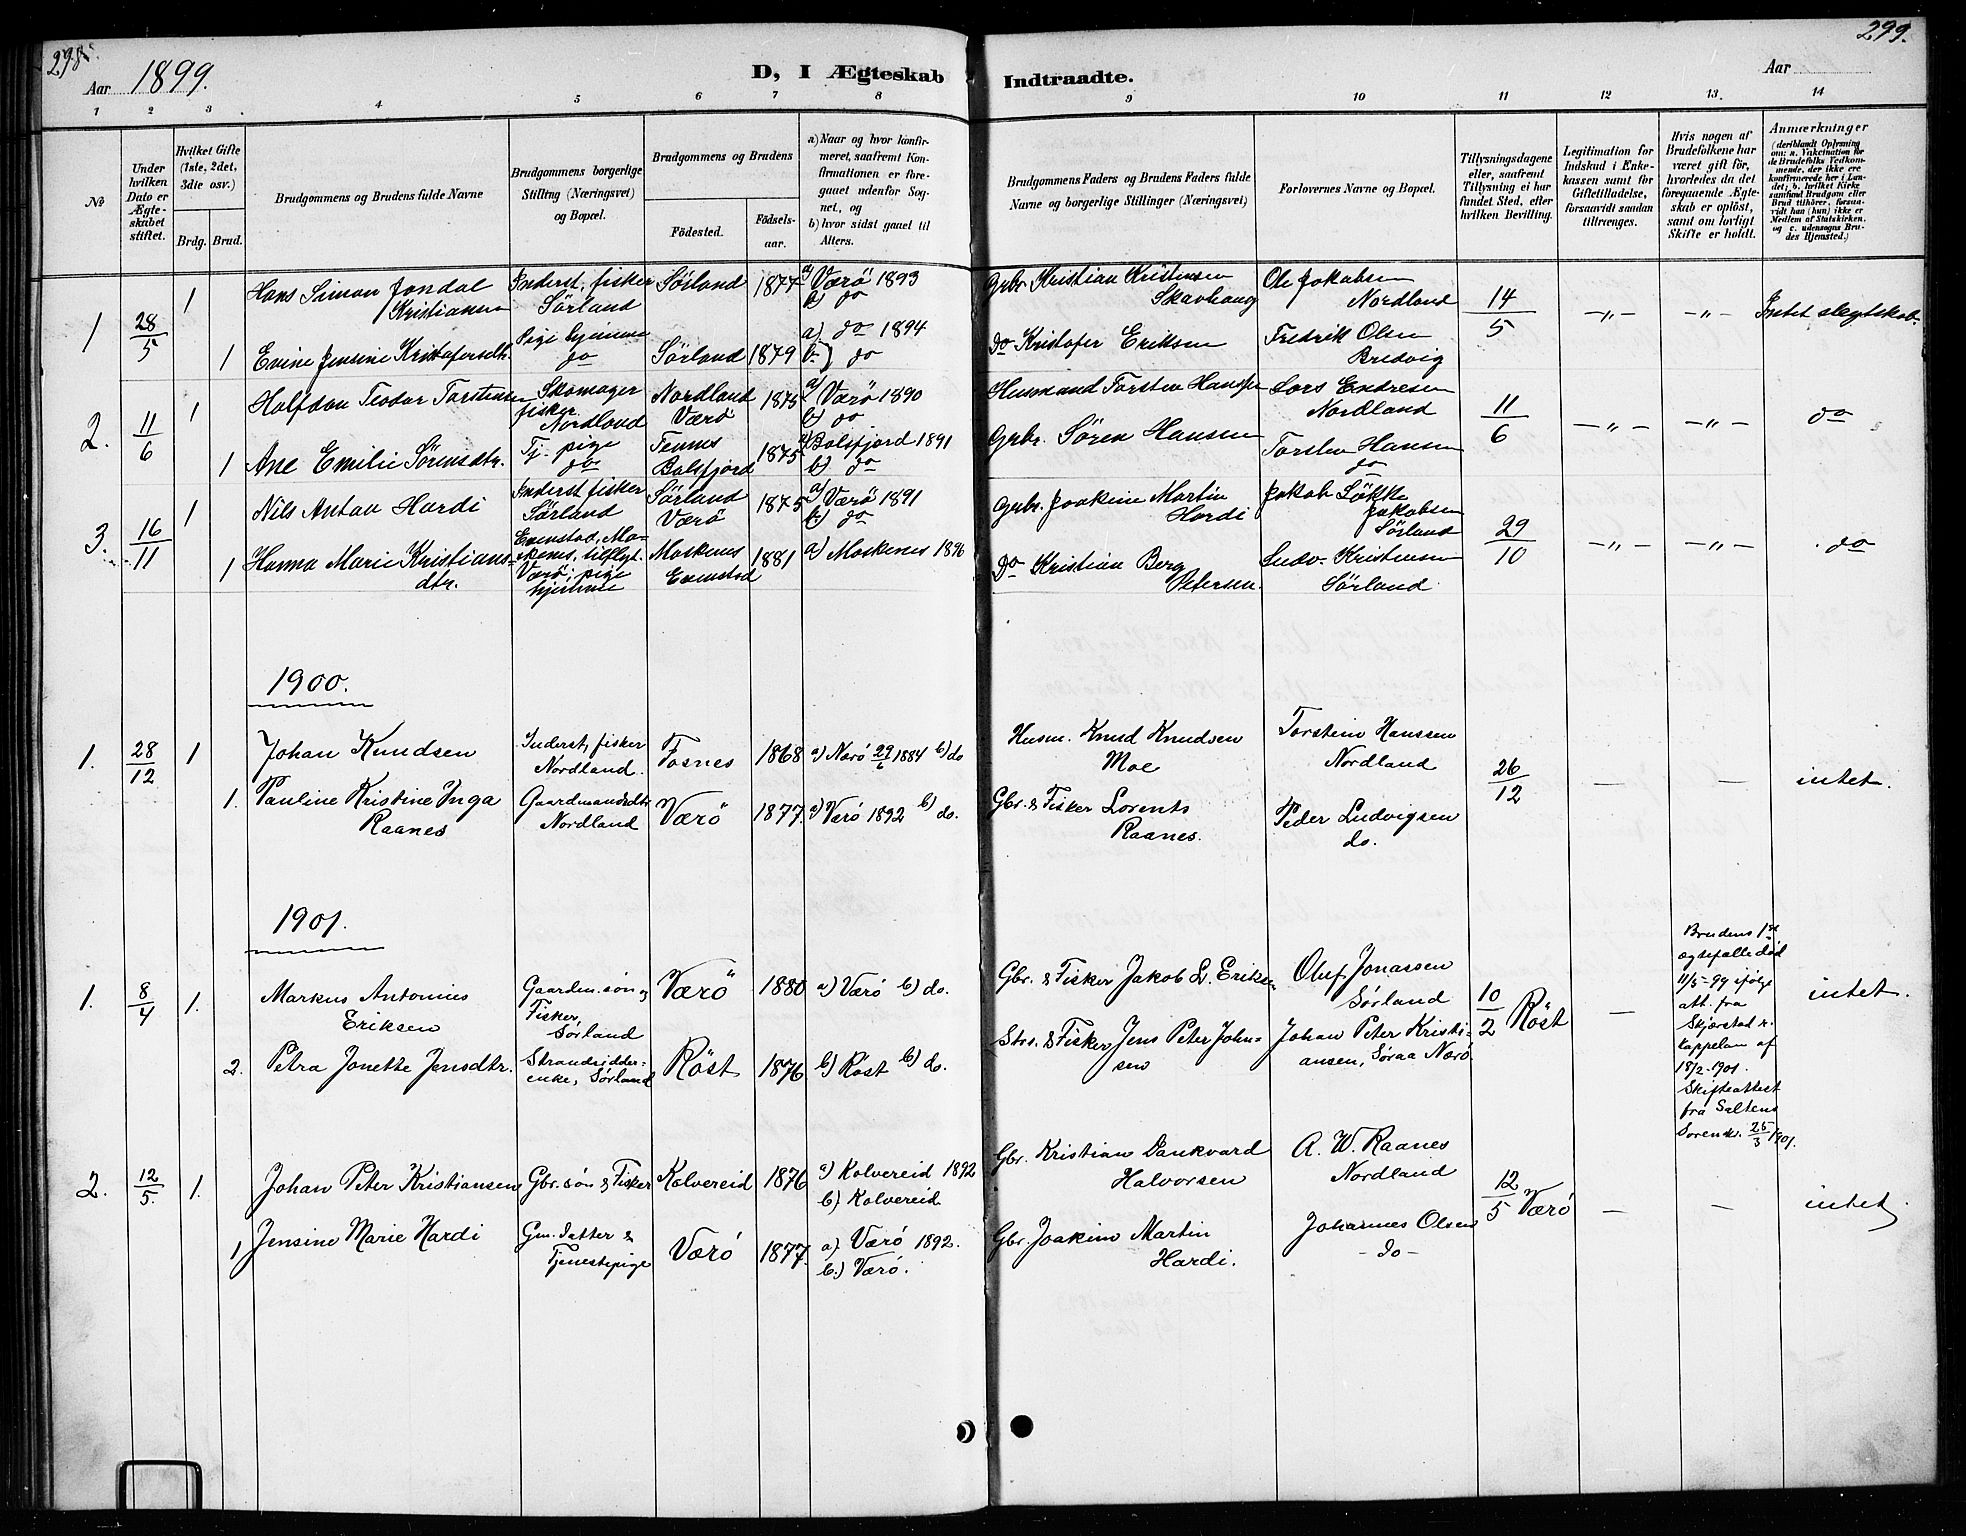 298.
Aar 1899.
D, I Ægteskab Indtraadte.
Aar
299.
1 2 3 4 5 6 7 8 9 10 11 12 13. 14
No
Under hvilken Dato er Ægteskabet stiftet.
Hvilket Gifte (1ste, 2det, 3die osv.)
Brdg. Brud.
Brudgommens og Brudens fulde Navne
Brudgommens borgerlige Stilling (Næringsvei) og Bopæl.
Brudgommens og Brudens
Födested.
Födsels-aar.
a) Naar og hvor konfirmeret, saafremt Konfirmationen er foregaaet udenför Sognet, og
b) hvor sidst gaaet til Alters.
Brudgommens Faders og Brudens Faders fulde Navne og borgerlige Stillinger (Næringsvei)
Forlovernes Navne og Bopæl.
Tillysningsdagene eller, saafremt Tillysning ei har fundet Sted, efter hvilken Bevilling.
Legitimation for Indskud i Enkekassen samt for Giftetilladelse, forsaavidt saadan tiltrænges.
Hvis nogen af Brudefolkene har været gift för, hvorledes da det foregaaende Ægteskab er oplöst, samt om lovligt Skifte er holdt.
Anmærkninger
(deriblandt Oplysning om: a. Vakcination for de Brudefolks Vedkommende, der ikke ere konfirmerede her i Landet; b. hvilket Kirkesamfund Brudgom eller Brud tilhörer, forsaavidt han (hun) ikke er Medlem af Statskirken. og c. udensogns Brudes Hjemsted.)
1 28/5 1 Hans Simon Jondal Kristiansen Inderst, fisker Sörland Sörland 1877 a) Værö 1893 b) do Gbr Kristian Kristensen Skarhaug Ole Jakobsen Nordland 14/5 —„— —„— Intet slegtskab.
1 Evine Jensine Kristofersdtr. Pige hjemme do Sörland 1879 a) do 1894 b) do do Kristofer Eriksen Fredrik Olsen Bredvig
2. 11/6 1 Halfdan Teodor Torstensen Skomager fisker Nordland Nordland Værö 1875 a) Værö 1890 b) do Husmand Torsten Hansen Lars Endresen Nordland 11/6 —„— —„— do
1 Ane Emilie Sörensdtr. Tj. pige do Tennes Balsfjord 1875 a) Balsfjord 1891 b) do Gbr. Sören Hansen Torsten Hansen do
3. 16/11 1 Nils Antan Hardi Inderst fisker Sörland Sörland Værö 1875 a) Værö 1891 b) do Gbr. Joakim Martin Hardi Jakob Lökke Jakobsen Sörland 29/10 —„— —„— do
1 Hanna Marie Kristiansdtr. Evenstad, Moskenes, tilflyt. Værö, pige hjemme Moskenes Evenstad 1881 a) Moskenes 1896 Do Kristian Berg Petersen. Ludv. Kristensen Sörland
1900.
1. 28/12 1 Johan Knudsen Inderst, fisker Nordland. Fosnes 1868 a) Nærö 29/6 1884 b) do Husm. Knud Knudsen Moe Torstein Hanssen Nordland 26/12 — — intet.
1. Pauline Kristine Inga Raanes Gaardmandsdtr Nordland Værö 1877. a) Værö 1892 b) do. Gbr. & Fisker Lorents Raanes. Peder Ludvigsen do.
1901.
1. 8/4 1. Markus Antonius Eriksen Gaardm. søn og Fisker, Sørland Værö 1880 a) Værö b) do. Gbr. & Fisker Jakob L. Eriksen Oluf Jonassen Sørland 10/2 Röst — Brudens 1ste ægtefælle död 11/5-99 ifølge att. fra Skjerstad r. kappelam af 18/2-1901. Skifteattest fra Saltens Sorensk. 25/3 1901. intet.
2. Petra Jonette Jensdtr. Strandsidder-enke, Sørland Röst 1876 b) Röst b) do. Strs. & Fisker Jens Peter Johnsen Johan Peter Kristiansen, Søraa Nærö
2. 12/5. 1. Johan Peter Kristiansen Gbr. søn & Fisker Kolvereid 1876 a) Kolvereid 1892 b) Kolvereid Gbr. Kristian Dankvard Halvorsen A. W. Raanes Nordland 12/5 Værö — — intet
1 Jensine Marie Hardi Gm. datter & Tjenestepige Værö 1877. a) Værö 1892. b.) Værö. Gbr. Joakim Martin Hardi. Johannes Olsen -do-